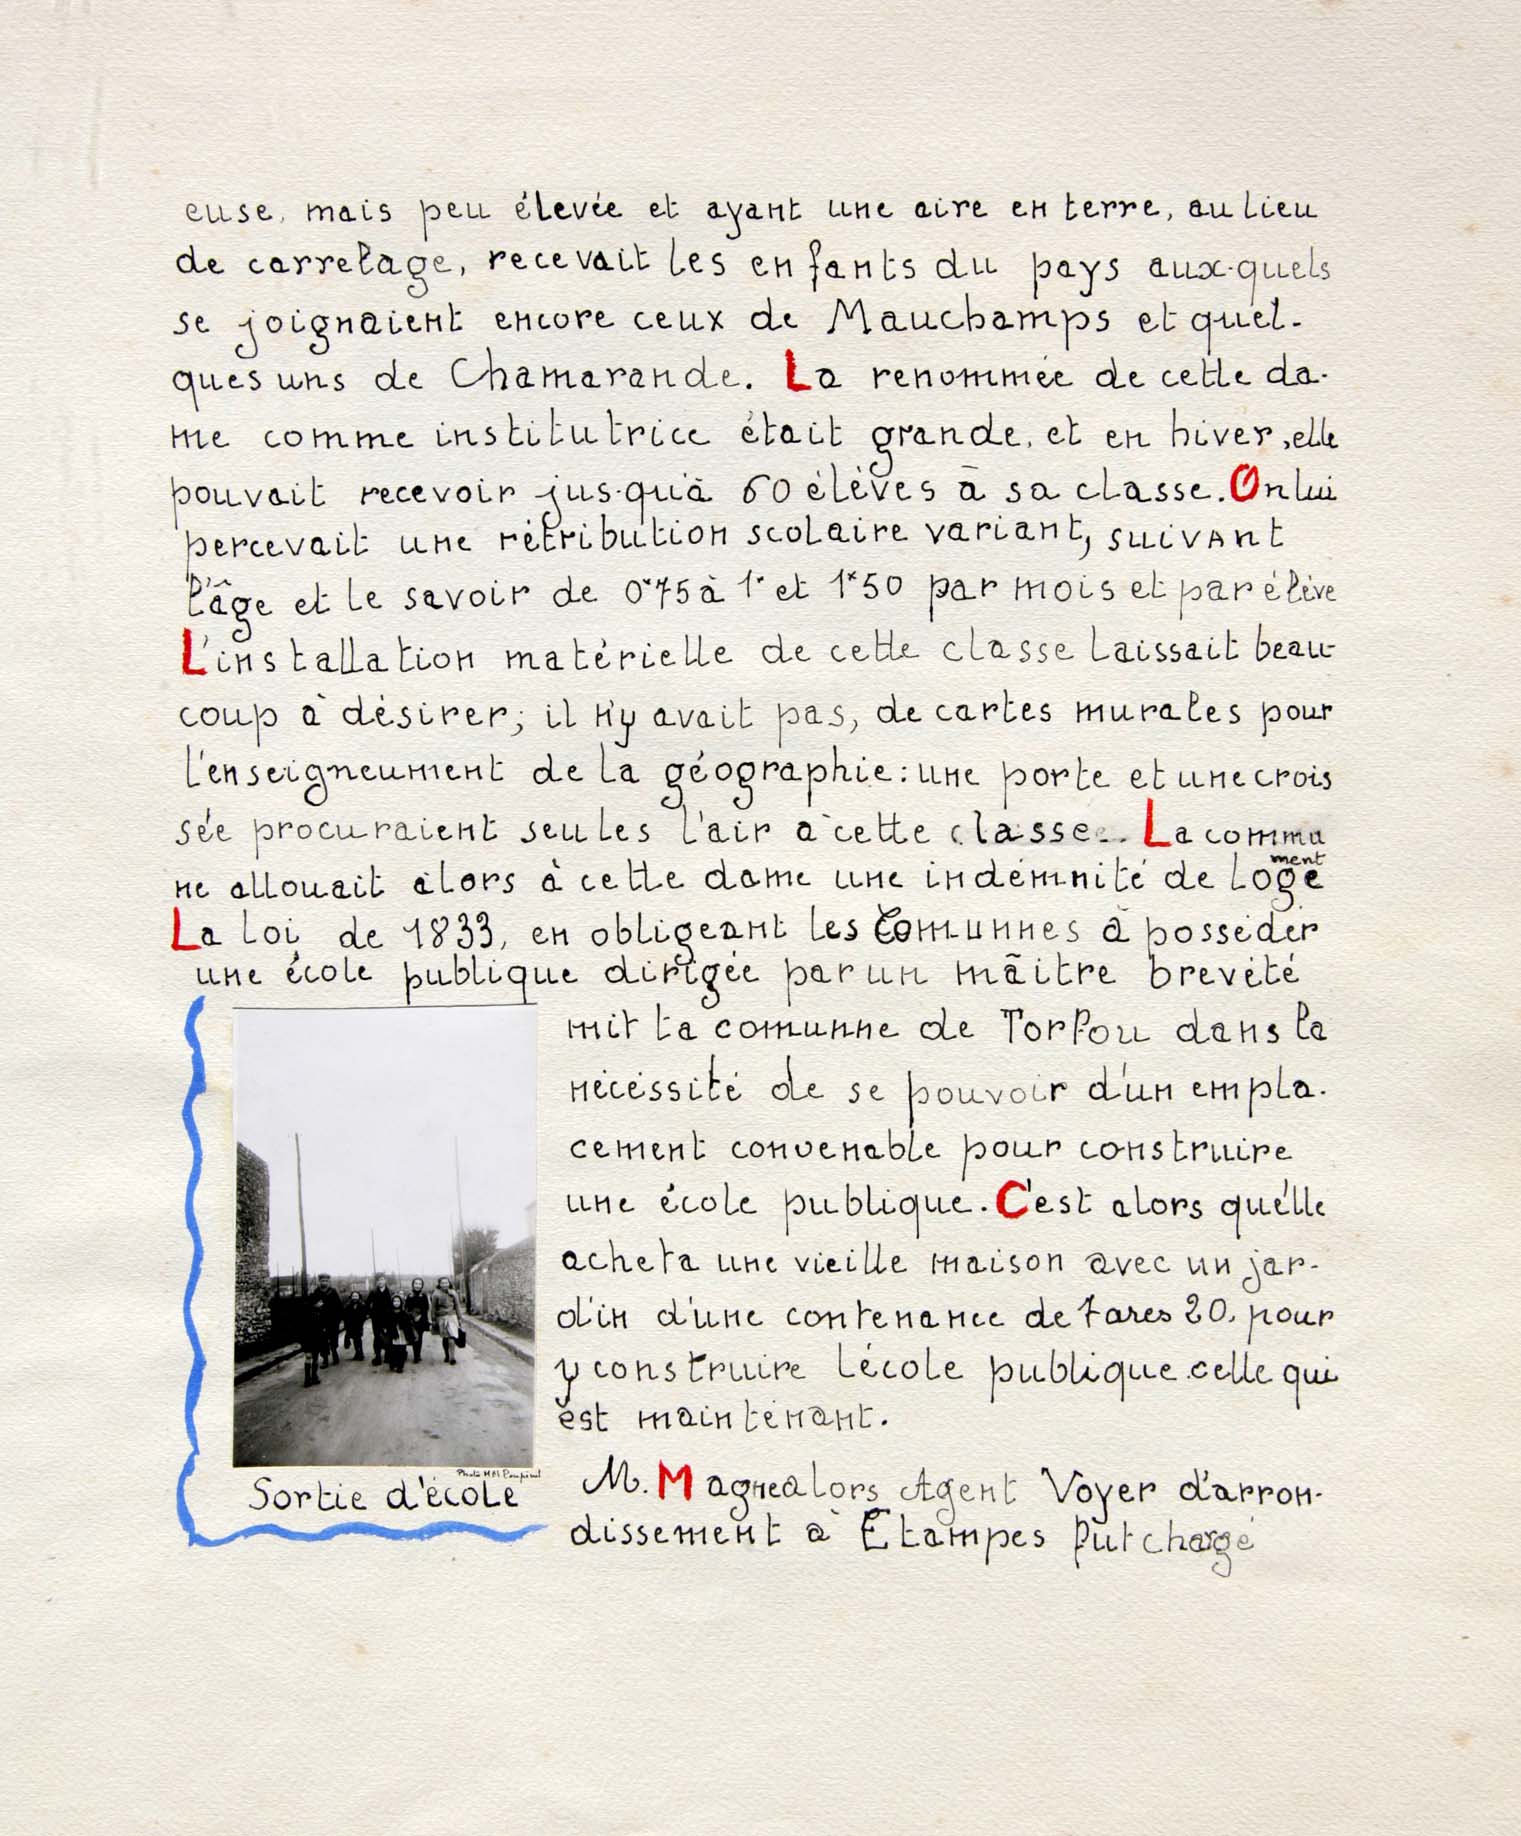 euse, mais peu élevée et ayant une aire en terre, au lieu
de carrelage, recevait les enfants du pays aux-quels
se joignaient encore ceux de Mauchamps et quel-
ques uns de Chamarande. La renommée de cette da-
me comme institutrice était grande, et en hiver, elle
pouvait recevoir jus-qu'à 60 élèves à sa classe. On lui
percevait une rétribution scolaire variant, suivant
l'âge et le savoir de 0f75 à 1f et 1f50 par mois et par élève
L'installation matérielle de cette classe laissait beau-
coup à désirer; il n'y avait pas, de cartes murales pour
l'enseigneument de la géographie: une porte et une crois
sée procuraient seules l'air à cette classe. La commu
ne allouait alors à cette dame une indémnité de logement
La loi de 1833, en obligeant les Comunnes à posséder
une école publique dirigée par un mãitre brevété
mit la comunne de Torfou dans la
nécéssité de se pouvoir d'un empla-
cement convenable pour construire
une école publique. C'est alors qu'élle
acheta une vieille maison avec un jar-
d'in d'une contenance de 7 ares 20, pour
y construire l'école publique celle qui
est maintenant.
M. Magne alors Agent Voyer d'arron-
dissement à Etampes fut chargé
Photo MM Poupinel
Sortie d'école